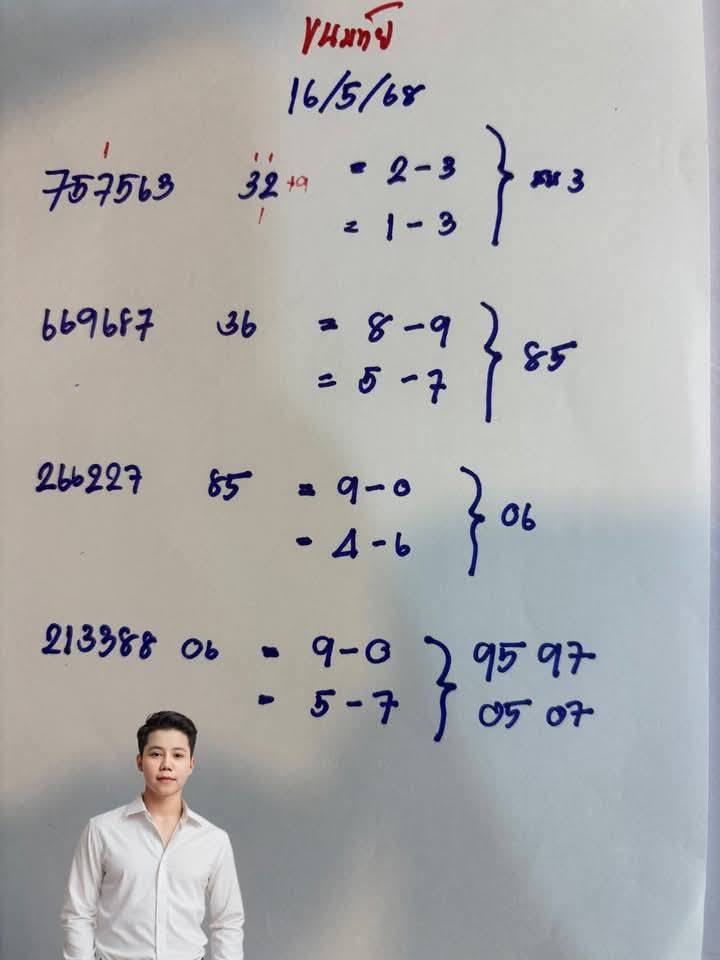 ขุนมทัย
16/5/68
1
757563 32 +9 = 2-3
1
= 1-3
3
669687 36 = 8-9
= 5-7
85
266227 85 = 9-0
= 4-6
06
213388 06 = 9-0
= 5-7
95 97
05 07